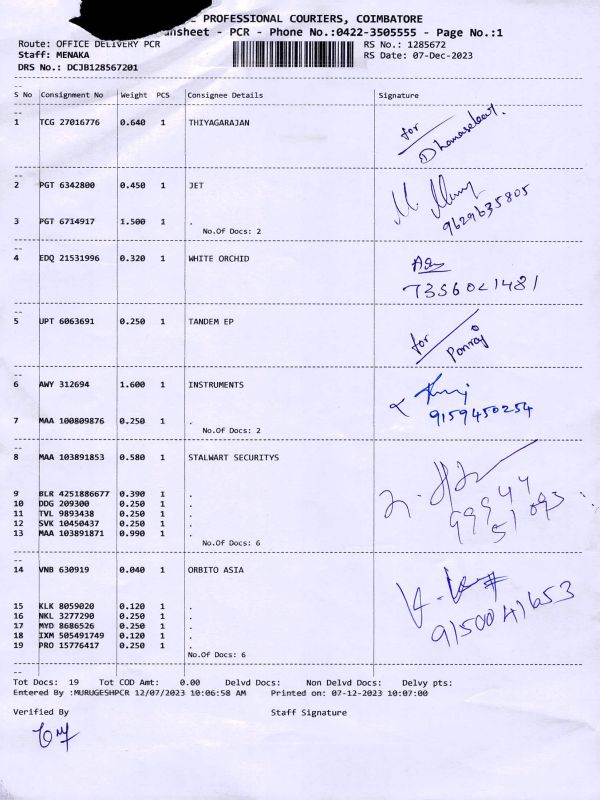 PROFESSIONAL COURIERS, COIMBATORE
unsheet - PCR - Phone No.:0422-3505555 - Page No.:1
Route: OFFICE DELIVERY PCR RS No.: 1285672
Staff: MENAKA RS Date: 07-Dec-2023
DRS No.: DCJB128567201
S No Consignment No Weight PCS Consignee Details Signature
1 TCG 27016776 0.640 1 THIYAGARAJAN for
2 PGT 6342800 0.450 1 JET
3 PGT 6714917 1.500 1 . 9629635805
No.Of Docs: 2
4 EDQ 21531996 0.320 1 WHITE ORCHID
5 UPT 6063691 0.250 1 TANDEM EP for
Ponraj
6 AWY 312694 1.600 1 INSTRUMENTS
9159450254
7 MAA 100809876 0.250 1 .
No.Of Docs: 2
8 MAA 103891853 0.580 1 STALWART SECURITYS
9 BLR 4251886677 0.390 1 .
10 DDG 209300 0.250 1 .
11 TVL 9893438 0.250 1 . 99944
12 SVK 10450437 0.250 1 . 51093
13 MAA 103891871 0.990 1 .
No.Of Docs: 6
14 VNB 630919 0.040 1 ORBITO ASIA
15 KLK 8059020 0.120 1 .
16 NKL 3277290 0.250 1 . 9150041653
17 MYD 8686526 0.250 1 .
18 IXM 505491749 0.120 1 .
19 PRO 15776417 0.250 1 .
No.Of Docs: 6
Tot Docs: 19 Tot COD Amt: 0.00 Delvd Docs: Non Delvd Docs: Delvy pts:
Entered By :MURUGESHPCR 12/07/2023 10:06:58 AM Printed on: 07-12-2023 10:07:00
Verified By Staff Signature